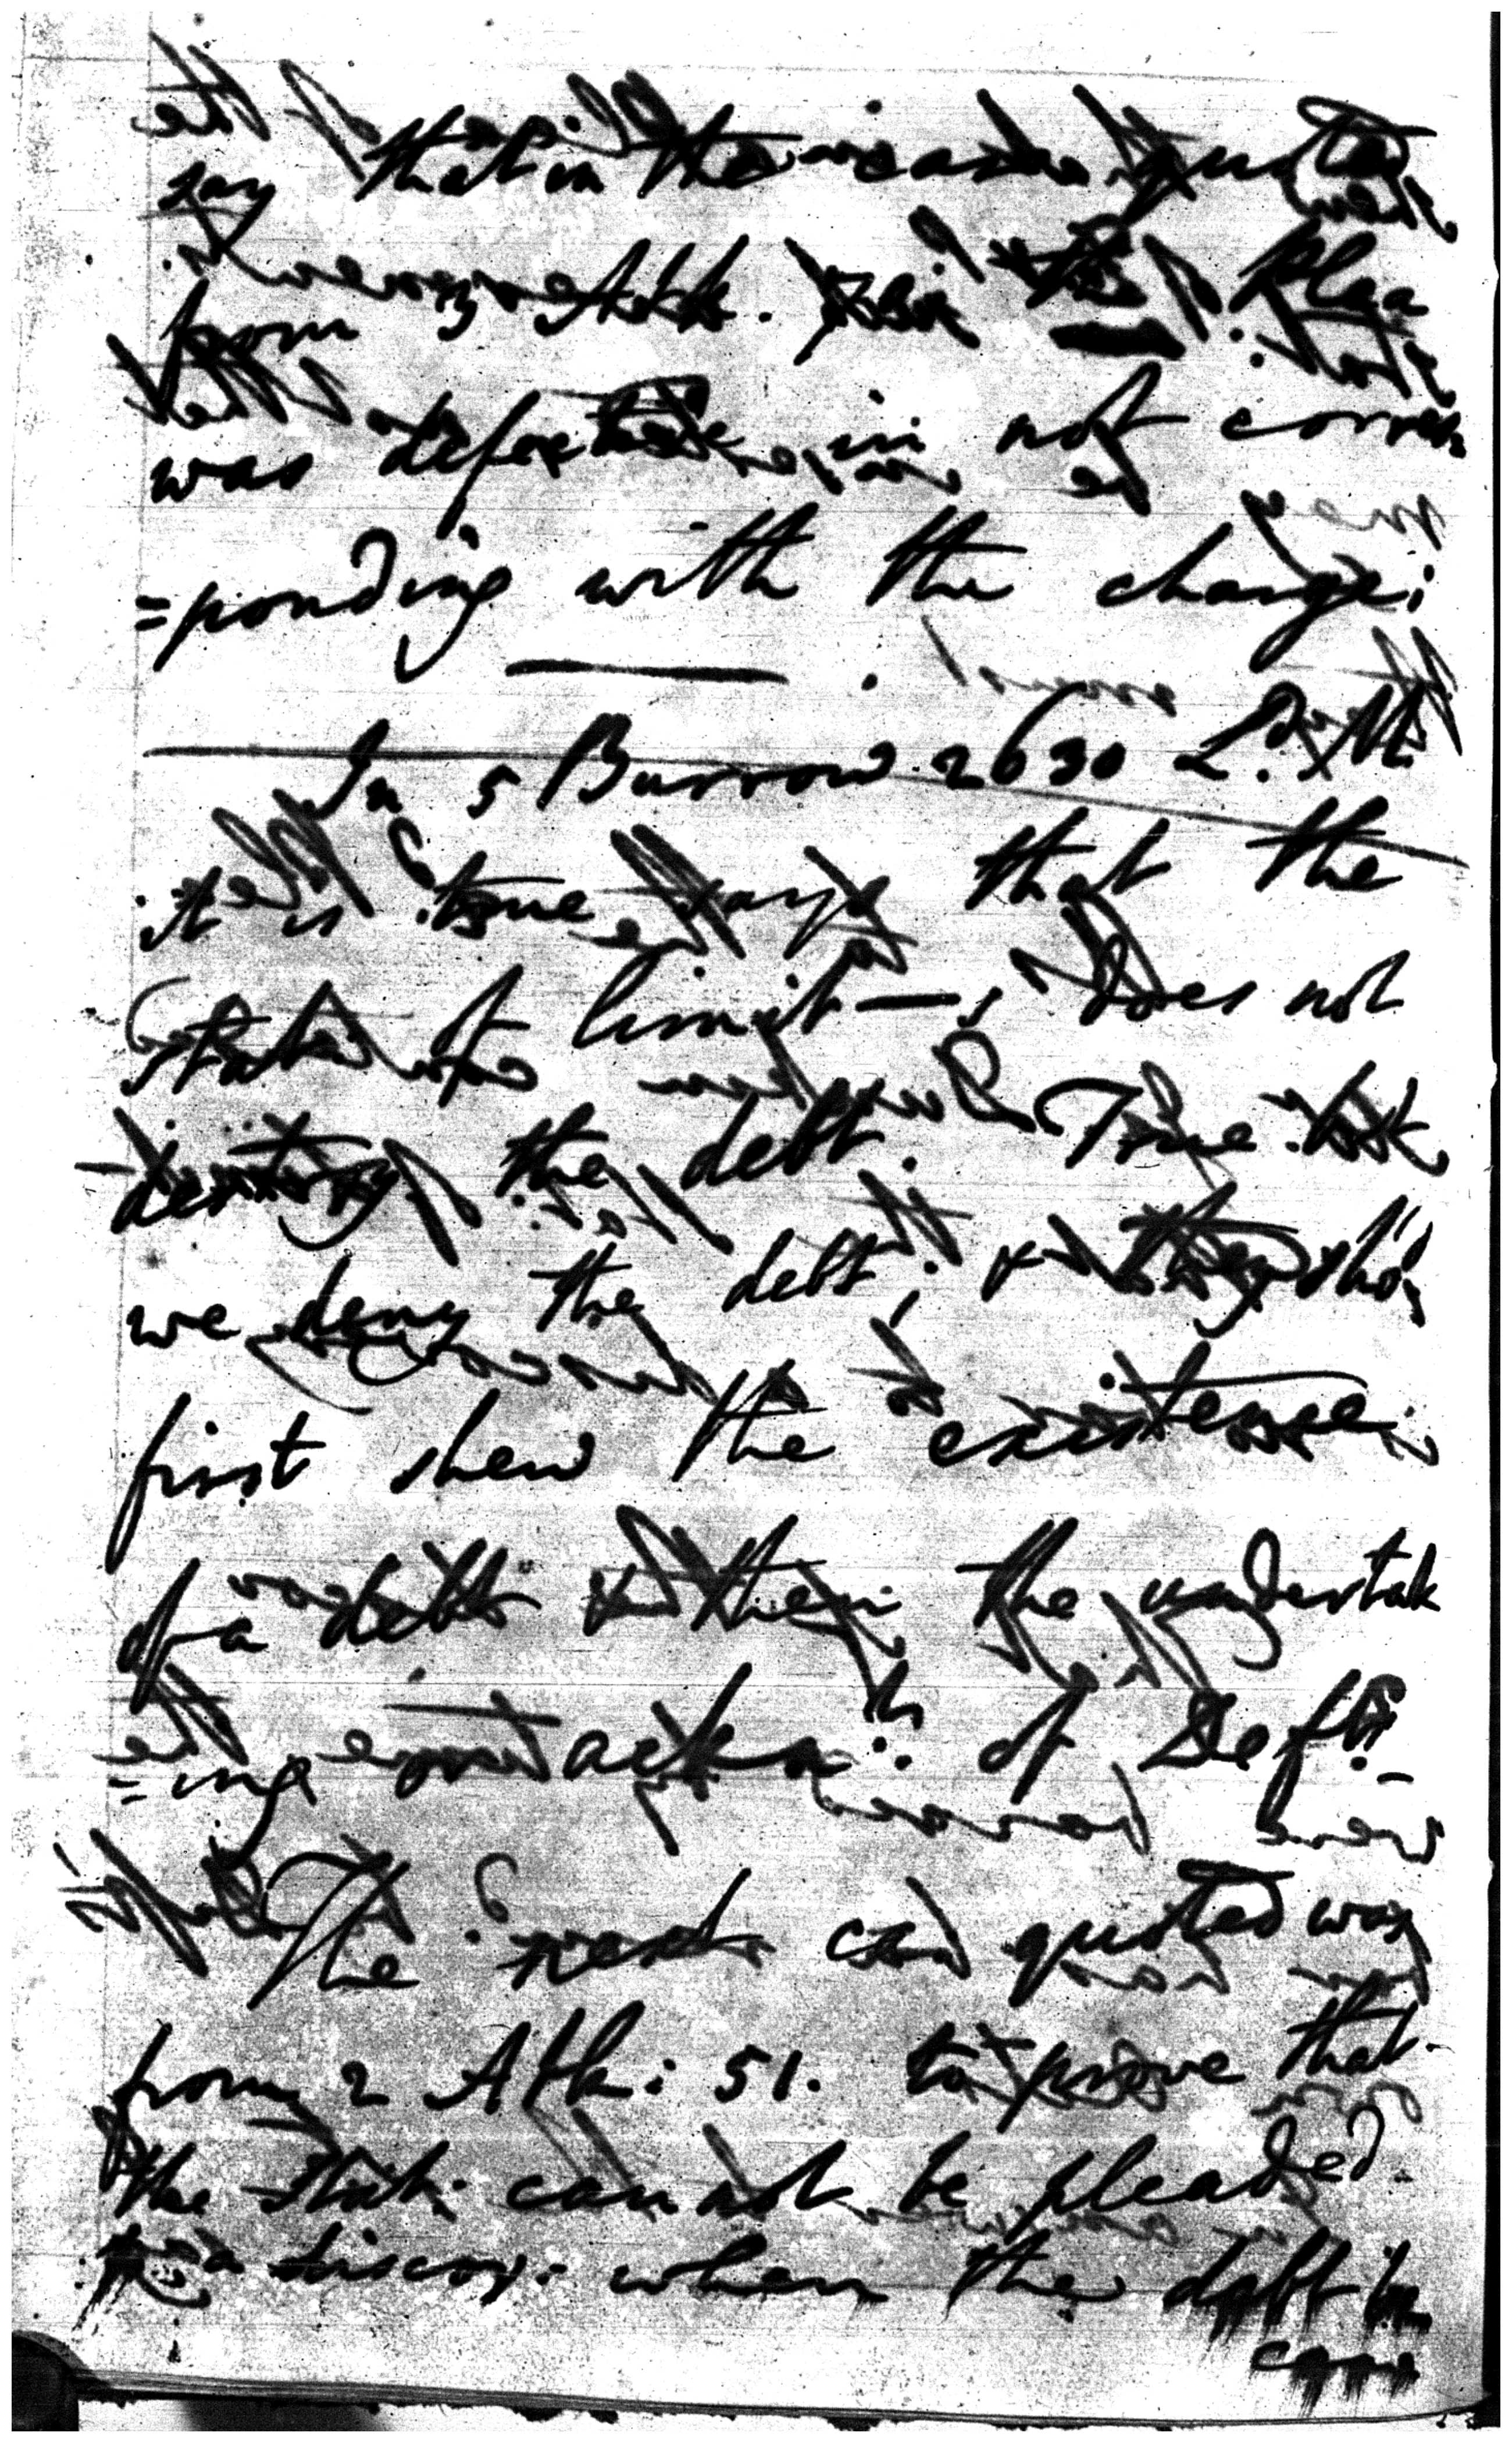 say that in the case quoted
from 3 Atk. the Plea
was defective in not corres-
=ponding with the charge;
In 5 Burrow. 2630 L.d M.
it is true says that the
statute of limit—s does not
destroy the debt. True but
we deny the debt; & they sho'd
first shew the existence
of a debt & then the undertak
=ing or ackn: of Def.t
The next case quoted was
from 2 Atk: 51. to prove that
the Stat: can not be pleaded
to a discov: when the debt in